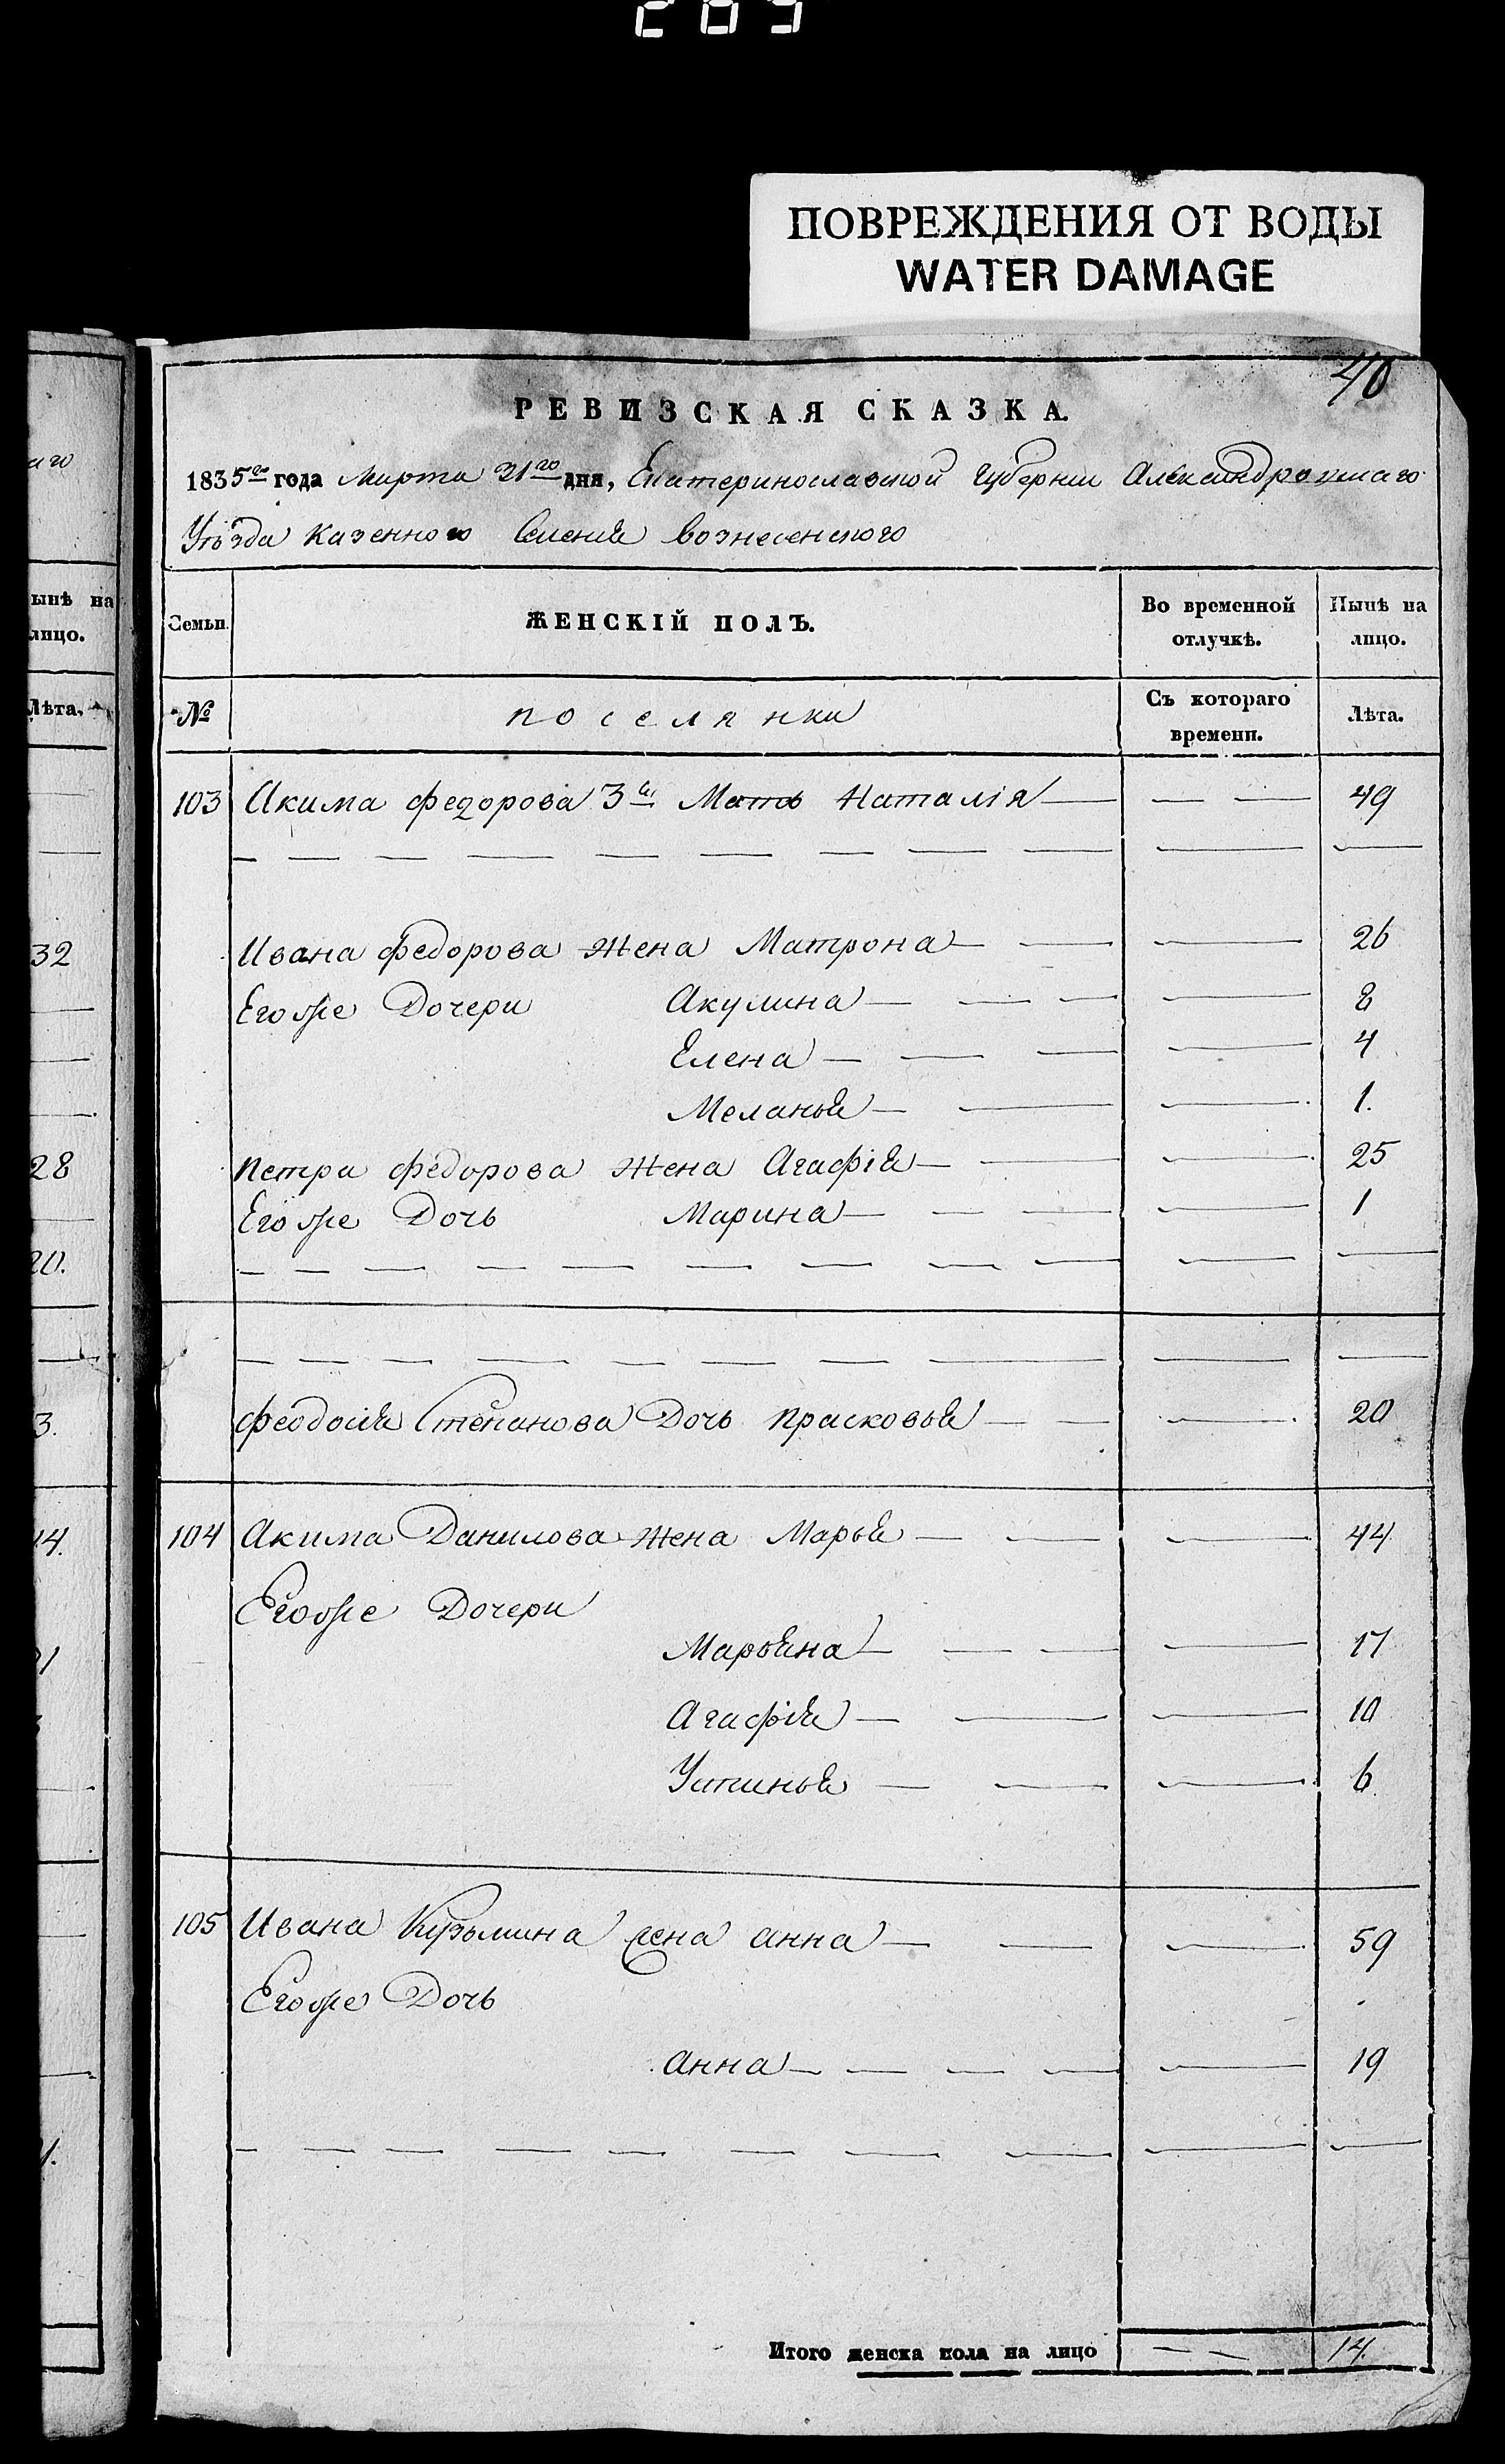 289
ПОВРЕЖДЕНИЯ ОТ ВОДЫ
WATER DAMAGE
40
РЕВИЗСКАЯ СКАЗКА.
1835го года Марта 31го дня, Екатеринославской Губернии Александровскаго
Уѣзда Казенного Селения Вознесенского
аго
ынѣ на
лицо.
Лѣта.
32
28
20.
3.
14.
Семьи. ЖЕНСКІЙ ПОЛЪ. Во временной отлучкѣ. Нынѣ на лицо.
№ поселянки Съ котораго времени. Лѣта.
103 Акима Федорова 3й Мать Наталія — — — 49
Ивана Федорова Жена Матрона — — — 26
Егоже Дочери Акулина — — — — 8
Елена — — — — 4
Меланья — — — 1.
Петра Федорова Жена Агафія — — — 25
Егоже Дочь Марина — — — — 1
Феодосія Степанова Дочь Прасковья — — — 20
104 Акима Данилова Жена Марья — — — 44
Егоже Дочери
Марьяна — — — — 17
Агафія — — — 10
Устинья — — — 6
105 Ивана Кузьмина жена Анна — — — 59
Егоже Дочь
Анна — — — — — 19
Итого женска пола на лицо — — 14.